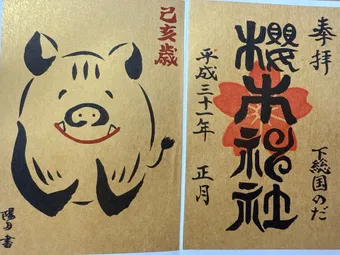 奉拝
櫻木神社
下総国のだ
平成三十一年 正月
己亥歳